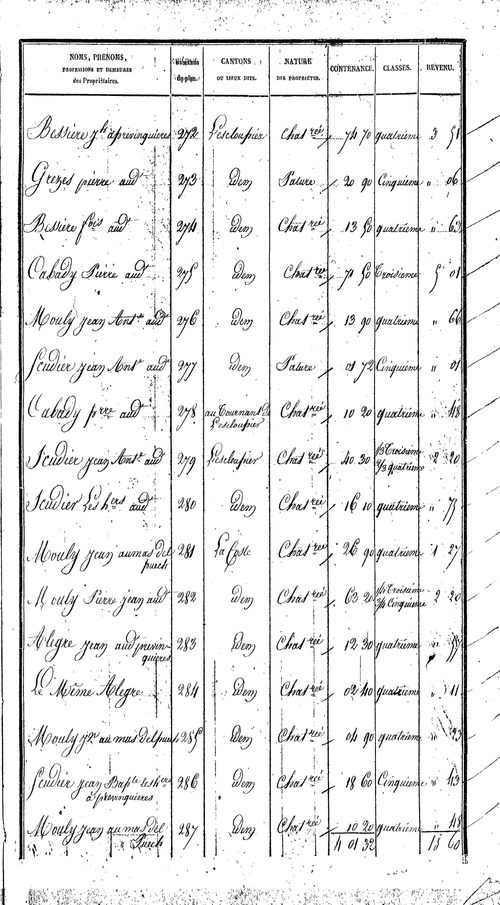 NOMS, PRÉNOMS, PROFESSIONS ET DEMEURES des Propriétaires. Numéros du plan. CANTONS OU LIEUX DITS. NATURE DES PROPRIÉTÉS. CONTENANCE. CLASSES. REVENU.
Bessière jh à prévinquieres 272 L'escloupier Chat reé 74 70 quatrième 3 51
Grezes pierre aud 273 idem Pature 20 90 Cinquième " 06
Bessière fois aud 274 idem Chat reé 13 50 quatrième " 63
Cabady Pierre aud 275 idem Chat reé 71 50 Troisième 5 01
Mouly jean Ant.e aud 276 idem Chat reé 13 90 quatrième " 66
Feudier jean Ant.e aud 277 idem Pature 01 72 Cinquième " 01
Cabady prre aud 278 au Tournant de L'escloupier Chat reé 10 20 quatrième " 48
Feudier jean Ant.e aud 279 L'escloupier Chat reé 40 30 Troisième quatrième 2 20
Feudier Les hers aud 280 idem Chat reé 16 10 quatrième " 75
Mouly jean au mas del puech 281 La Coste Chat reé 26 90 quatrième 1 27
Mouly Pierre jean aud 282 idem Chat reé 63 20 Troisième Cinquième 2 20
Alegre jean aud prévinquieres 283 idem Chat reé 12 30 quatrième "
Le Même Alegre 284 idem Chat reé 02 40 quatrième " 11
Mouly au mas del puech 285 idem Chat reé 04 90 quatrième " 23
Feudier jean Bap.te les hers à prévinquieres 286 idem Chat reé 18 60 Cinquième " 43
Mouly jean au mas del Puech 287 idem Chat reé 10 20 quatrième " 48
4 01 32 18 60